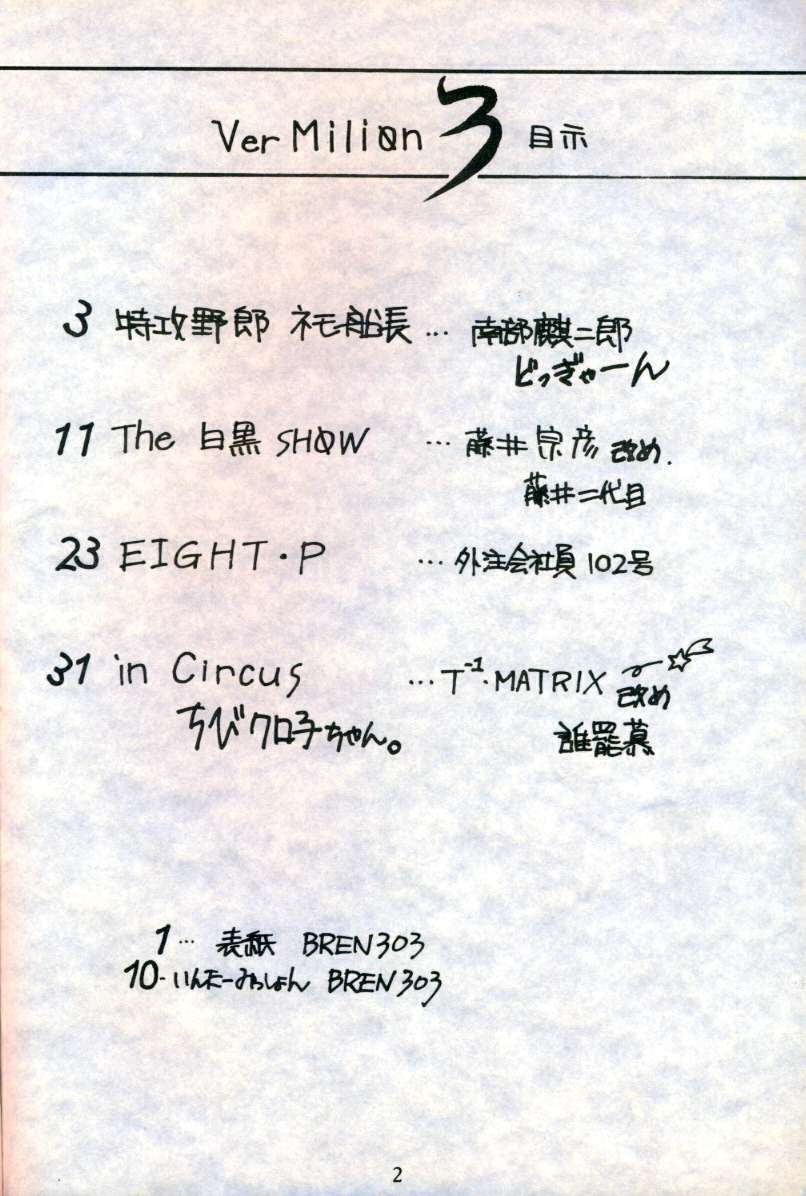 Ver Miliøn 3 目示
3 特攻野郎 ネモ船長 … 南部麒二郎
どっぎゃーん
11 The 白黒 SHØW … 藤井宗彦 改め.
藤井二代目
23 EIGHT・P … 外注会社員 102号
31 in Circus … T⁻¹・MATRIX 改め
ちびクロ子ちゃん。 誰罷慕
1… 表紙 BREN303
10- いんたーみっしょん BREN303
2